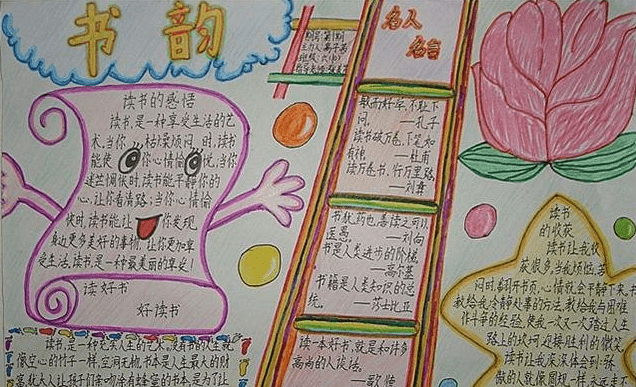 书韵
名人
名言
读书的感悟
读书,是一种享受生活的艺
术,当你枯燥烦闷时,读书
能使你心情愉悦,当你
迷茫惆怅时,读书能平静你的
心,让你看清路;当你心情愉
快时,读书能让你发现
身边更多美好的事物,让你更加享
受生活,读书,是一种最美丽的享受!
读好书
好读书
敏而好学,不耻下
问。 —孔子
读书破万卷,下笔如
有神 —杜甫
读万卷书,行万里路
—刘彝
书犹药也,善读之可以
医愚。 —刘向
书是人类进步的阶梯。
—高尔基
书籍是人类知识的总
统。 —莎士比亚
读一本好书,就是和许多
高尚的人谈话。
—歌德
读书
的收获
读书让我收
获很多,当我烦恼、苦
闷时,翻开书页,心情就会平静下来,书
教给我冷静处事的方法,教给我与困难
作斗争的经验,使我一次又一次踏过人生
路上的坎坷,迎接胜利的微笑
读书让我深深体会到:张
读书,是一种充实人生的艺术,没有书的人生就
像空心的竹子一样,空洞无物,书本是人生最大的财